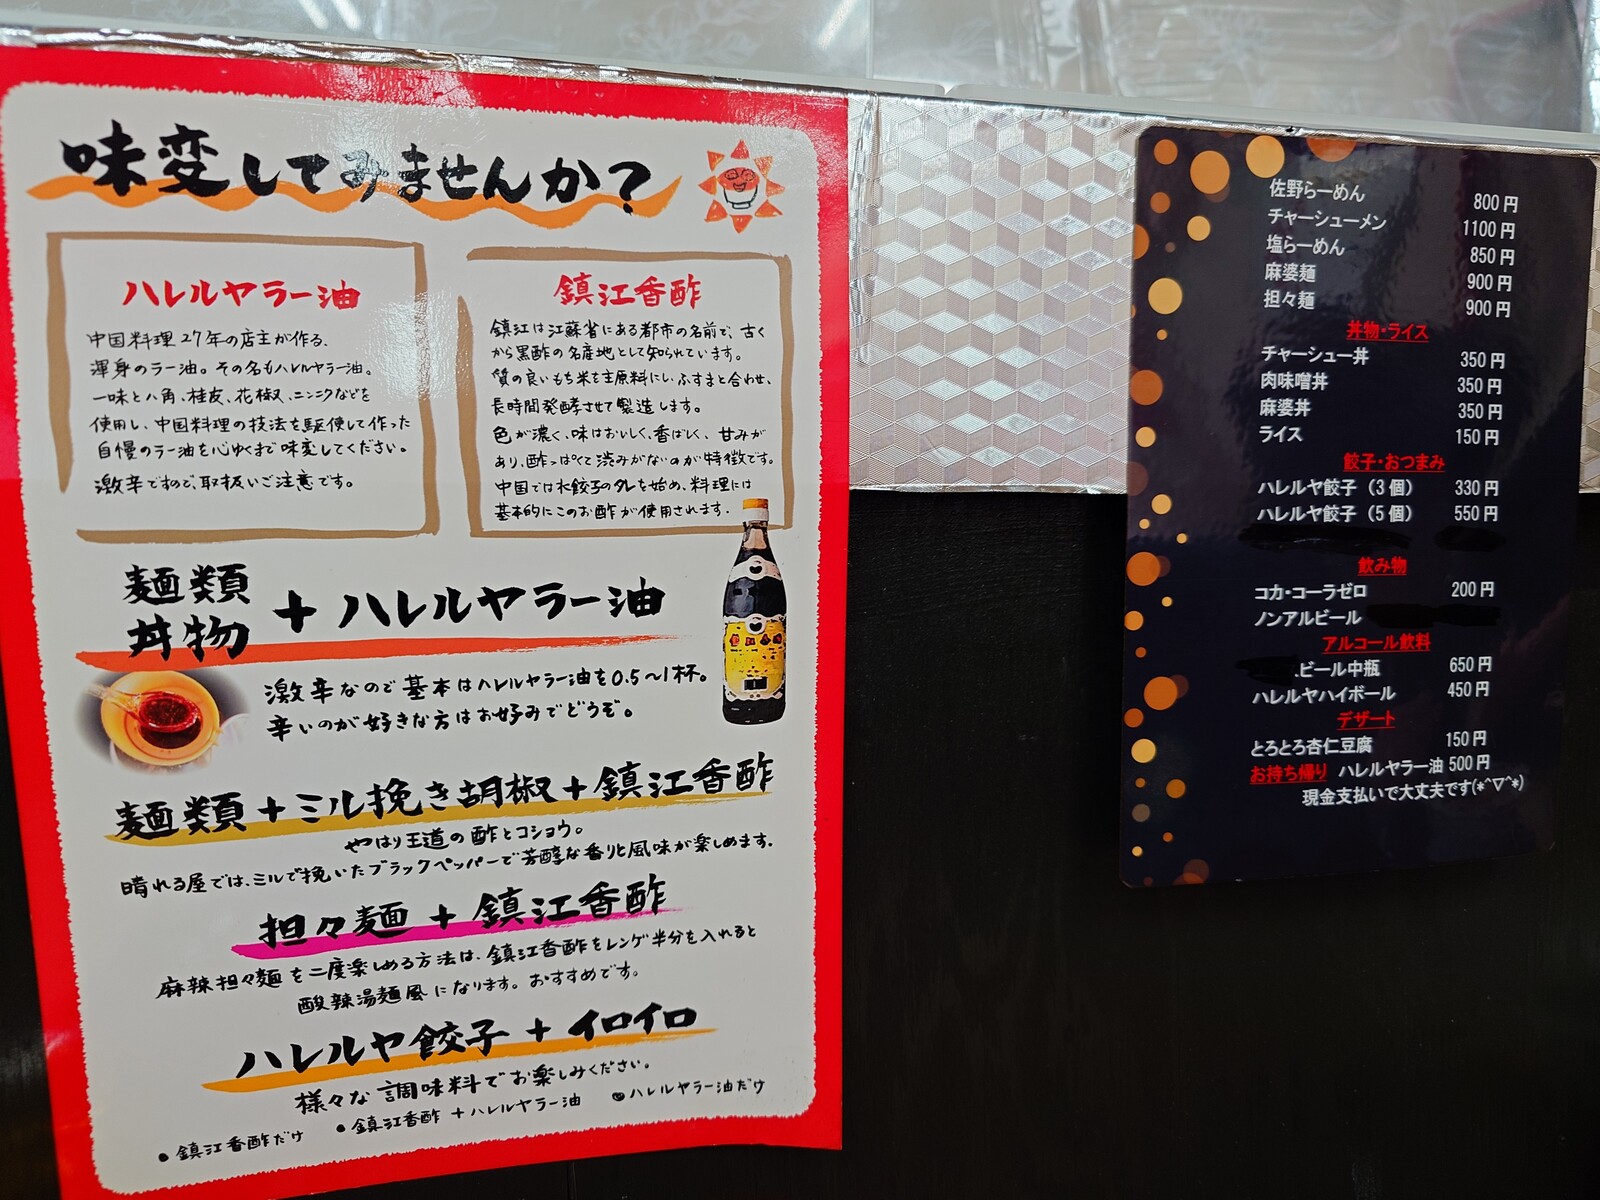 味変してみませんか?
ハレルヤラー油
中国料理27年の店主が作る、
渾身のラー油。その名もハレルヤラー油。
一味と八角、桂皮、花椒、ニンニクなどを
使用し、中国料理の技法を駆使して作った
自慢のラー油を心ゆくまで味変してください。
激辛ですので、取扱いご注意です。
鎮江香酢
鎮江は江蘇省にある都市の名前で、古く
から黒酢の名産地として知られています。
質の良いもち米を主原料にし、ふすまと合わせ、
長時間発酵させて製造します。
色が濃く、味はおいしく、香ばしく、甘みが
あり、酢っぱくて渋みがないのが特徴です。
中国では水餃子のタレを始め、料理には
基本的にこのお酢が使用されます。
麺類
丼物
+ハレルヤラー油
激辛なので基本はハレルヤラー油を0.5〜1杯。
辛いのが好きな方はお好みでどうぞ。
麺類+ミル挽き胡椒+鎮江香酢
やはり王道の酢とコショウ。
晴れる屋では、ミルで挽いたブラックペッパーで芳醇な香りと風味が楽しめます。
担々麺+鎮江香酢
麻辣担々麺を二度楽しめる方法は、鎮江香酢をレンゲ半分を入れると
酸辣湯麺風になります。おすすめです。
ハレルヤ餃子+イロイロ
様々な調味料でお楽しみください。
●鎮江香酢だけ ●鎮江香酢+ハレルヤラー油 ●ハレルヤラー油だけ
佐野らーめん 800円
チャーシューメン 1100円
塩らーめん 850円
麻婆麺 900円
担々麺 900円
丼物・ライス
チャーシュー丼 350円
肉味噌丼 350円
麻婆丼 350円
ライス 150円
餃子・おつまみ
ハレルヤ餃子(3個) 330円
ハレルヤ餃子(5個) 550円
飲み物
コカ・コーラゼロ 200円
ノンアルビール
アルコール飲料
ビール中瓶 650円
ハレルヤハイボール 450円
デザート
とろとろ杏仁豆腐 150円
お持ち帰り ハレルヤラー油 500円
現金支払いで大丈夫です(*^▽^*)